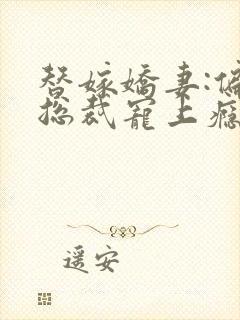 替嫁娇妻:偏
总裁宠上瘾
遥安